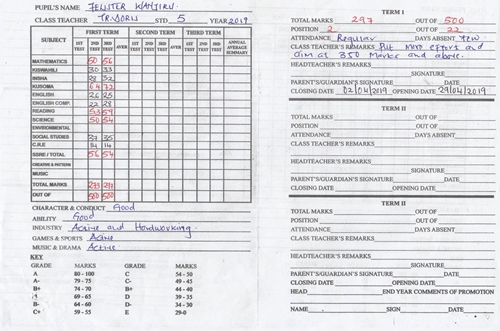 PUPIL'S NAME FELISTER WANJIRU
CLASS TEACHER TR. DORIS STD 5 YEAR 2019
SUBJECT FIRST TERM SECOND TERM THIRD TERM ANNUAL AVERAGE SUMMARY
1ST TEST 2ND TEST 3RD TEST AVER 1ST TEST 2ND TEST 3RD TEST AVER 1ST TEST 2ND TEST 3RD TEST AVER
MATHEMATICS 50 56
KISWAHILI 30 33
INSHA 32
KUSOMA 64 72
ENGLISH 26 25
ENGLISH COMP. 22 28
READING 53 59
SCIENCE 50 54
ENVIRONMENTAL
SOCIAL STUDIES 37 36
C.R.E 14 14
SSRE / TOTAL 56 54
CREATIVE & PATTERN
MUSIC
TOTAL MARKS 273 297
OUT OF 500 500
CHARACTER & CONDUCT Good
ABILITY Good
INDUSTRY Active and Hardworking.
GAMES & SPORTS Active
MUSIC & DRAMA Active.
KEY
GRADE MARKS GRADE MARKS
A 80 - 100 C 54 - 50
A- 79 - 75 C- 49 - 45
B+ 74 - 70 B+ 44 - 40
69 - 65 D 39 - 35
B- 64 - 60 D- 34 - 30
C+ 59 - 55 E 29-0
TERM I
TOTAL MARKS 297 OUT OF 500
POSITION 2 OUT OF 22
ATTENDANCE Regular DAYS ABSENT Few
CLASS TEACHER'S REMARKS Put more effort and
aim at 350 Marks and above.
HEADTEACHER'S REMARKS
SIGNATURE
PARENT'S/GUARDIAN'S SIGNATURE DATE
CLOSING DATE 02/04/2019 OPENING DATE 29/04/2019
TERM II
TOTAL MARKS OUT OF
POSITION OUT OF
ATTENDANCE DAYS ABSENT
CLASS TEACHER'S REMARKS
HEADTEACHER'S REMARKS
SIGNATURE DATE
PARENT'S/GUARDIAN'S SIGNATURE DATE
CLOSING DATE OPENING DATE
TERM II
TOTAL MARKS OUT OF
POSITION OUT OF
ATTENDANCE DAYS ABSENT
CLASS TEACHER'S REMARKS
HEADTEACHER'S REMARKS
SIGNATURE DATE
PARENT'S/GUARDIAN'S SIGNATURE DATE
CLOSING DATE OPENING DATE
HEAD END YEAR COMMENTS OF PROMOTION
NAME SIGN DATE